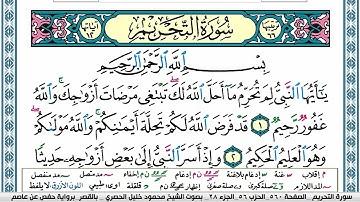 سُورَةُ التَّحْرِيمِ
بِسْمِ اللَّهِ الرَّحْمَٰنِ الرَّحِيمِ
يَا أَيُّهَا النَّبِيُّ لِمَ تُحَرِّمُ مَا أَحَلَّ اللَّهُ لَكَ تَبْتَغِي مَرْضَاتَ أَزْوَاجِكَ وَاللَّهُ
غَفُورٌ رَّحِيمٌ ١ قَدْ فَرَضَ اللَّهُ لَكُمْ تَحِلَّةَ أَيْمَانِكُمْ وَاللَّهُ مَوْلَاكُمْ
وَهُوَ الْعَلِيمُ الْحَكِيمُ ٢ وَإِذْ أَسَرَّ النَّبِيُّ إِلَىٰ بَعْضِ أَزْوَاجِهِ حَدِيثًا
سورة التحريم الصفحة ٥٦٠ الحزب ٥٦ الجزء ٢٨ بصوت الشيخ محمود خليل الحصري بالقصر برواية حفص عن عاصم